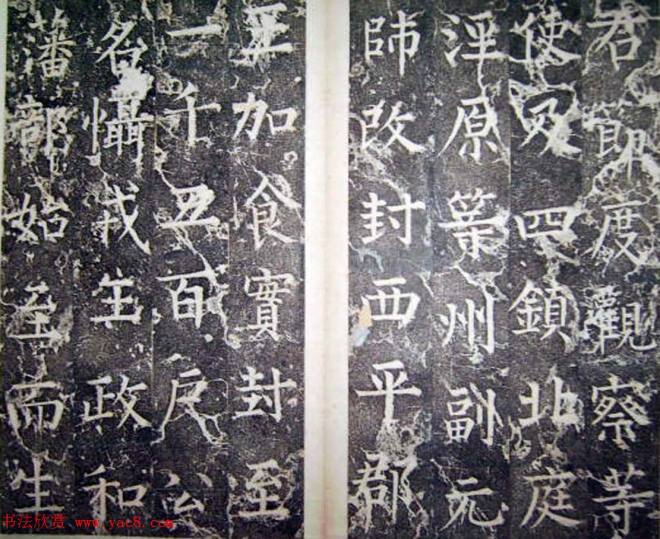 右節度觀察等
使及四鎮北庭
涇原等州副元
帥改封西平郡
王加食實封至
一千五百户公
名懾戎主政和
藩部始至而生
书法欣赏 www.yac8.com